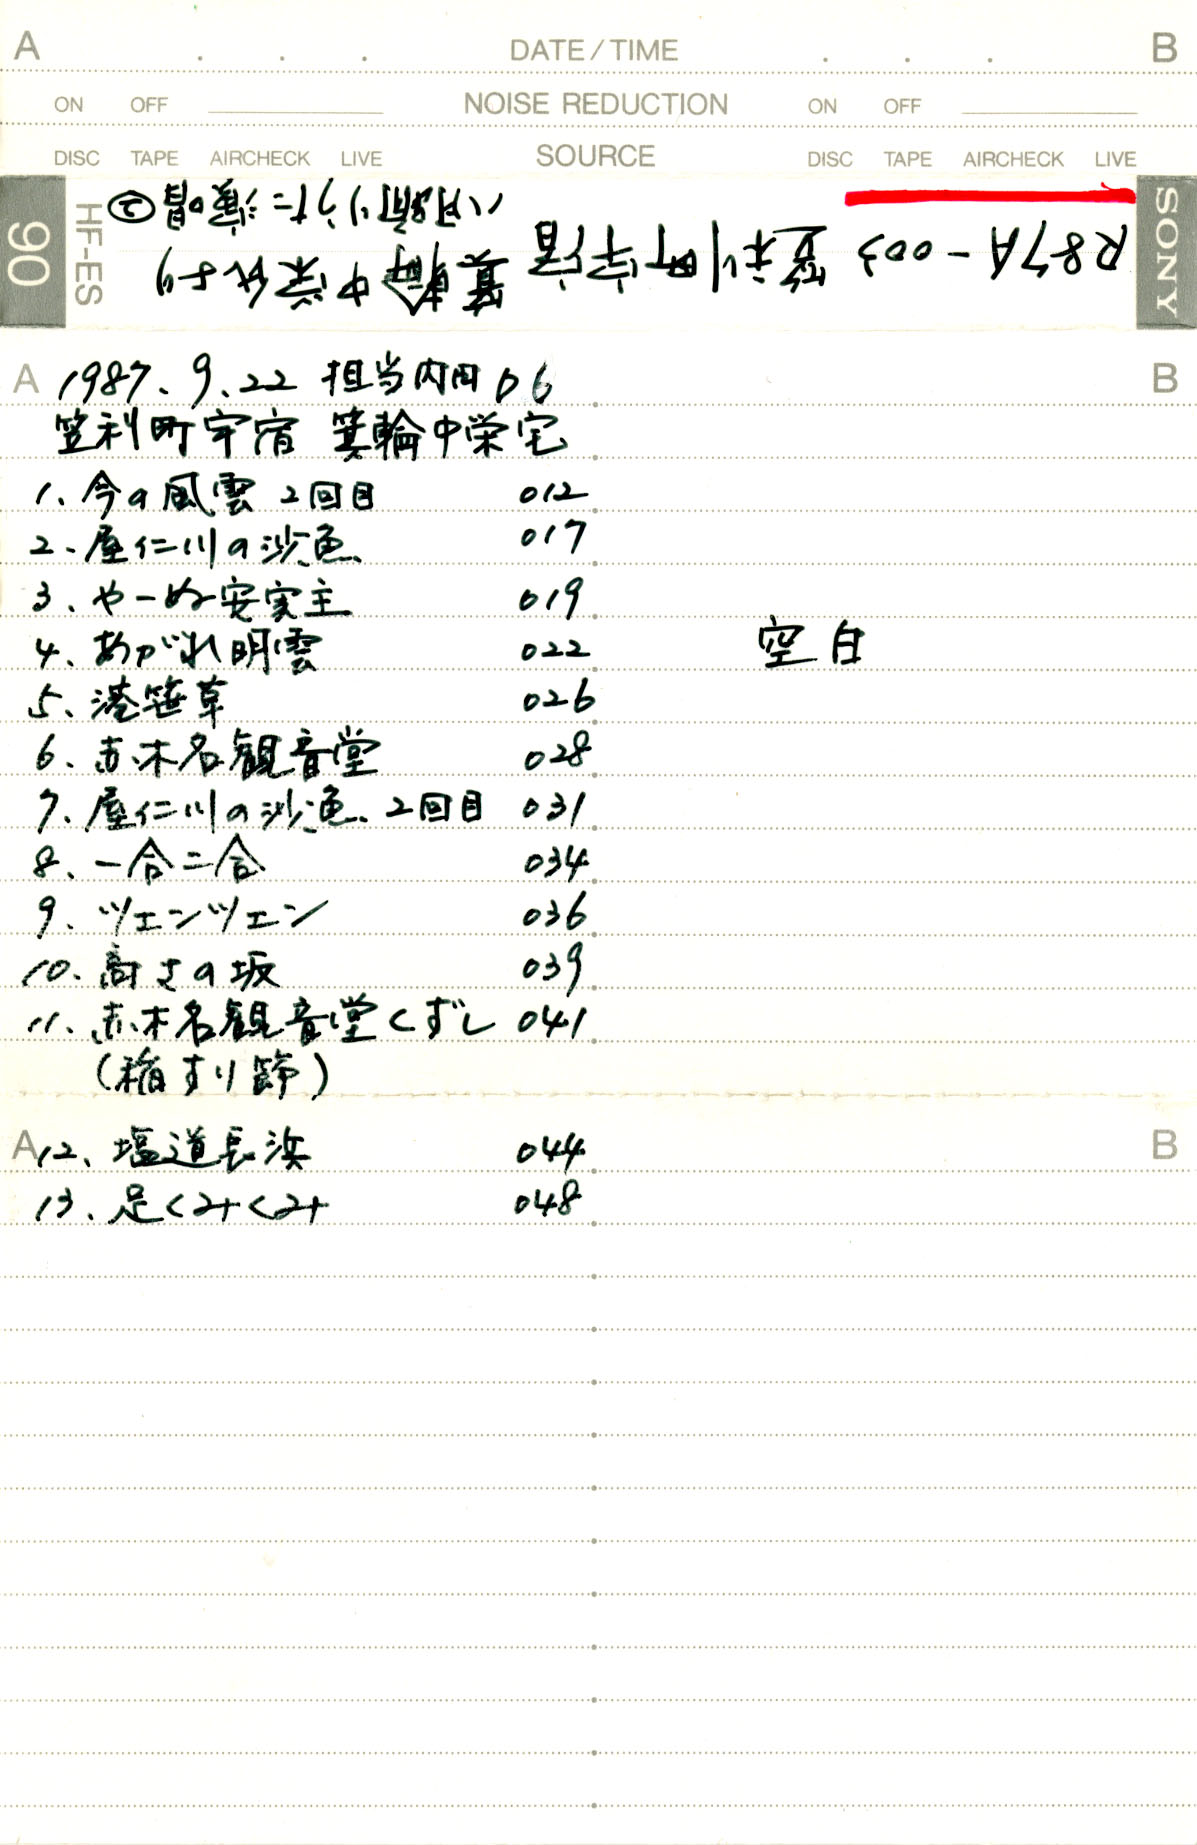 A . . . DATE/TIME . . . B
ON OFF NOISE REDUCTION ON OFF
DISC TAPE AIRCHECK LIVE SOURCE DISC TAPE AIRCHECK LIVE
SONY
R87A-003 笠利町宇宿 箕輪中栄氏より
八月踊りうた演唱②
HF-ES
90
A 1987.9.22 担当内田 06 B
笠利町宇宿 箕輪中栄宅
1. 今の風雲 2回目 012
2. 屋仁川の沙魚 017
3. やーぬ安実主 019
4. あがれ明雲 022
空白
5. 港笹草 026
6. 赤木名観音堂 028
7. 屋仁川の沙魚 2回目 031
8. 一合二合 034
9. ツェンツェン 036
10. 高さの坂 039
11. 赤木名観音堂くずし 041
(稲すり節)
A 12. 塩道長浜 044 B
13. 足くみくみ 048